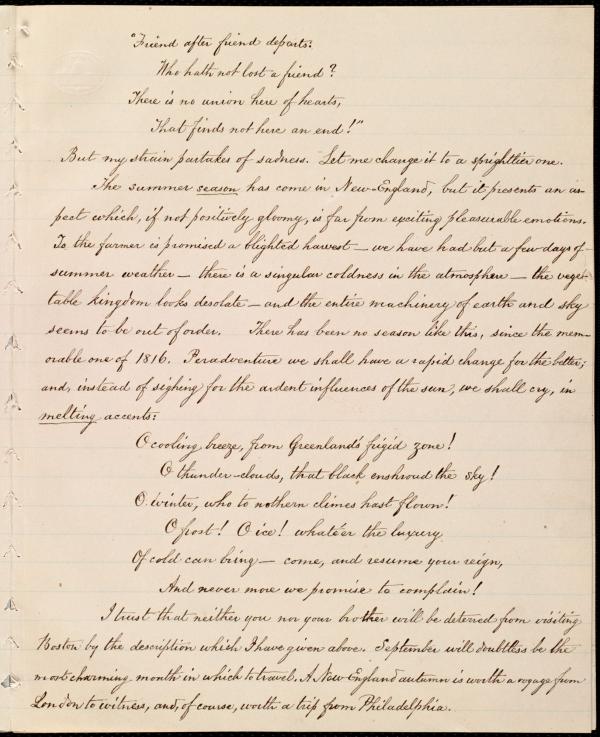 "Friend after friend departs:
Who hath not lost a friend?
There is no union here of hearts,
That finds not here an end!"
But my strain partakes of sadness. Let me change it to a sprightlier one.
The summer season has come in New-England, but it presents an as-
pect which, if not positively gloomy, is far from exciting pleasurable emotions.
To the farmer is promised a blighted harvest — we have had but a few days of
summer weather — there is a singular coldness in the atmosphere — the vege-
table kingdom looks desolate — and the entire machinery of earth and sky
seems to be out of order. There has been no season like this, since the mem-
orable one of 1816. Peradventure we shall have a rapid change for the better;
and, instead of sighing for the ardent influences of the sun, we shall cry, in
melting accents:
O cooling breeze, from Greenland's frigid zone!
O thunder-clouds, that black enshroud the sky!
O winter, who to nothern climes hast flown!
O frost! O ice! whate'er the luxury
Of cold can bring — come, and resume your reign,
And never more we promise to complain!
I trust that neither you nor your brother will be deterred from visiting
Boston by the description which I have given above. September will doubtless be the
most charming month in which to travel. A New-England autumn is worth a voyage from
London to witness, and, of course, worth a trip from Philadelphia.